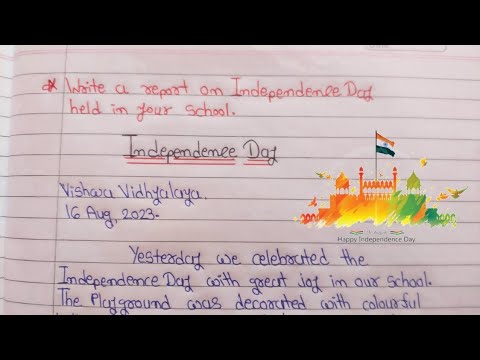 * Write a report on Independence Day
held in your school.
Independence Day
Vishwa Vidhyalaya.
16 Aug, 2023.
Happy Independence Day
Yesterday we celebrated the
Independence Day with great joy in our school.
The Playground was decorated with colourful